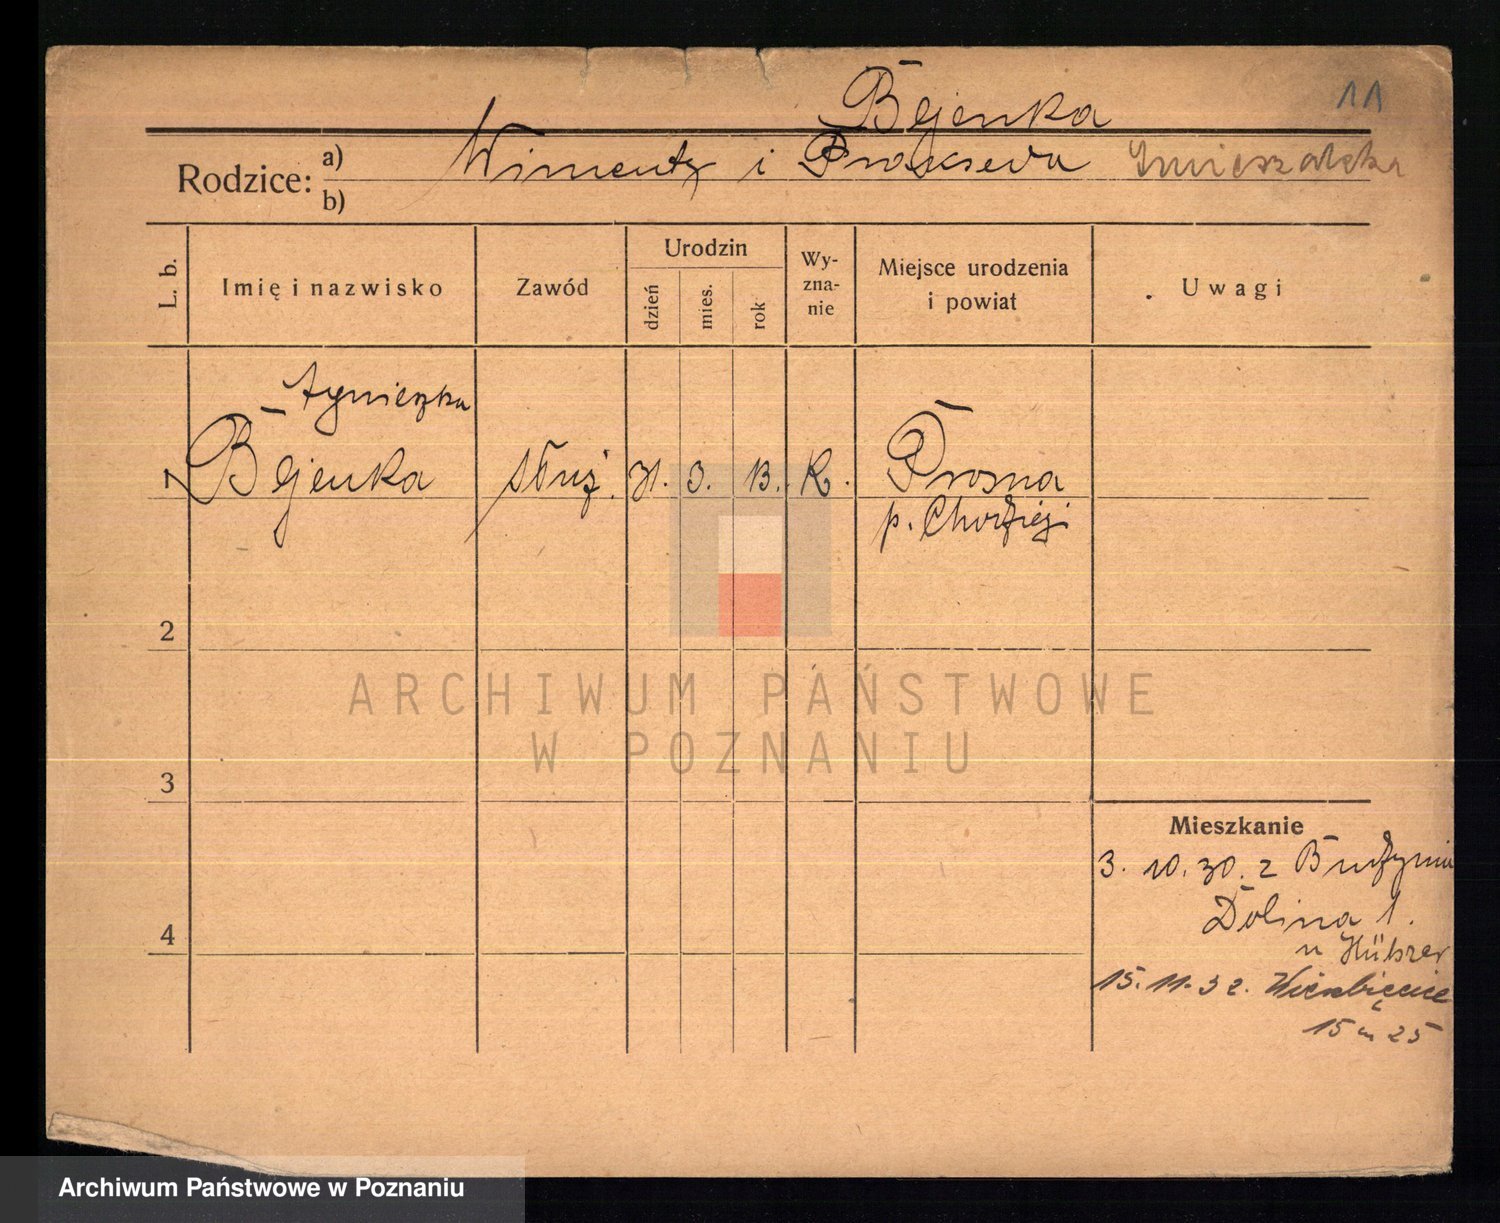 11
Bejenka
Rodzice: a) Wincenty i Prakseda
b)
L. b.
Imię i nazwisko
Zawód
Urodzin
dzień
mies.
rok
Wy-
zna-
nie
Miejsce urodzenia
i powiat
Uwagi
Agnieszka
1 Bejenka służ. 31. 3. 13. K. Prosna
p. Chodzież
2
ARCHIWUM PAŃSTWOWE
W POZNANIU
3
Mieszkanie
3. 10. 30. z Budzynia
Dolina 1.
4
15. 11. 32. Wierzbięcice
15 m 25
Archiwum Państwowe w Poznaniu